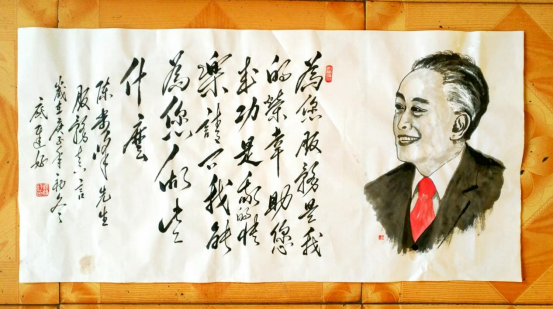 為您服務是我
的榮幸助您
成功是我的快
樂請问我能
為您做些
什麼
陳步峰先生
服務真言
歲在庚子年初冬